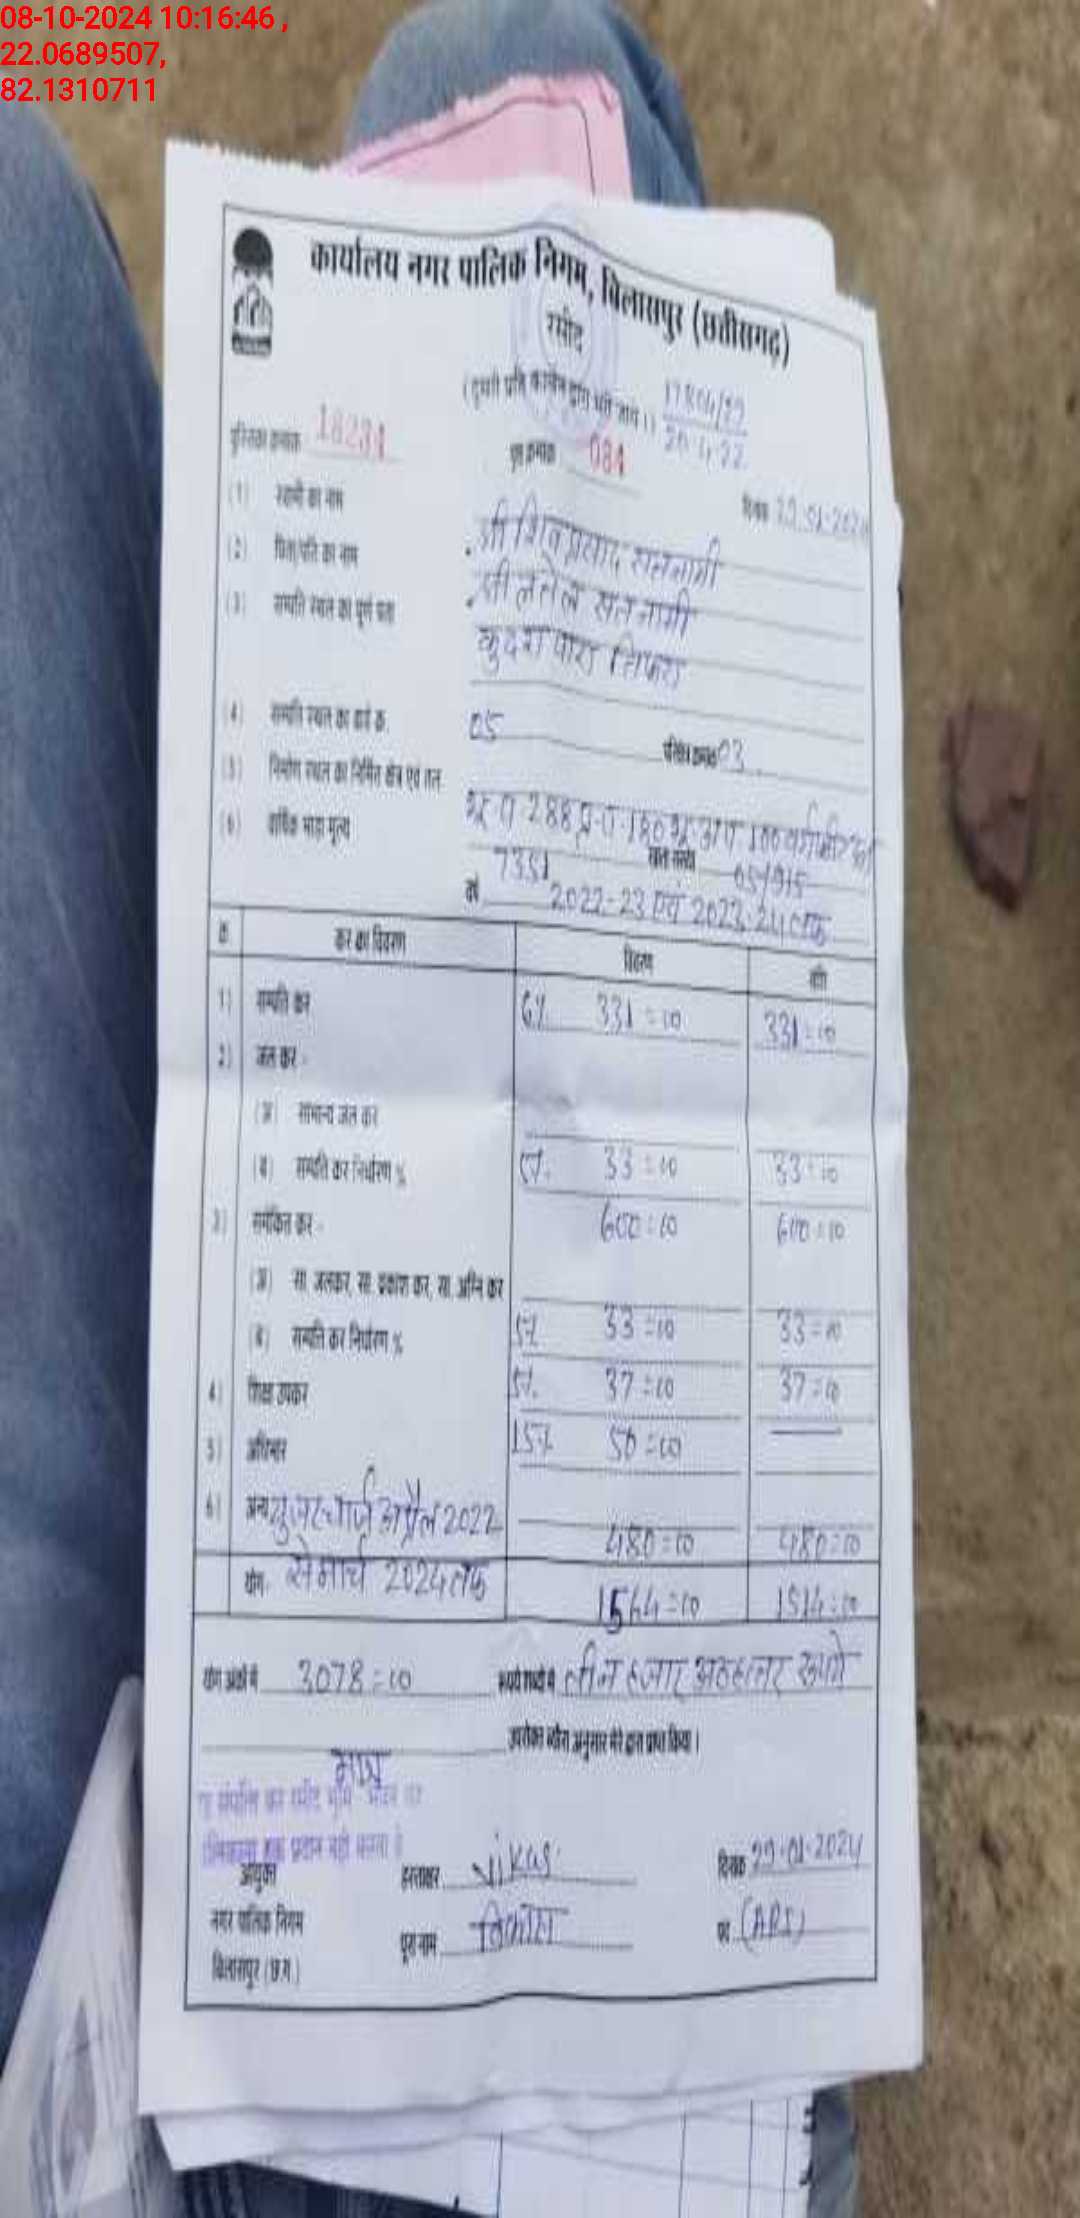 08-10-2024 10:16:46 ,
22.0689507,
82.1310711
कार्यालय नगर पालिक निगम, बिलासपुर (छत्तीसगढ़)
रसीद
(दूसरी प्रति कार्बन द्वारा भरी जाय।)
20.4.22
पुस्तिका क्रमांक 18234 पृष्ठ क्रमांक 084
दिनांक 29.01.2024
(1) स्वामी का नाम श्री शिव प्रसाद सतनामी
(2) पिता/पति का नाम श्री लतेल सतनामी
(3) सम्पति स्थल का पूर्ण पता कुदरा पारा तिफरा
(4) सम्पति स्थल का वार्ड क्र. 05 परिक्षेत्र क्रमांक 03
(5) निर्माण स्थल का निर्मित क्षेत्र एवं तल 288 180 100
(6) वार्षिक भाड़ा मूल्य 7351 05/915
वर्ष 2022-23 एवं 2023-24 तक
क्र कर का विवरण विवरण राशि
1) सम्पति कर 6% 331=00 331=00
2) जल कर -
(अ) सामान्य जल कर
(ब) सम्पति कर निर्धारण % 33=00 33=00
3) समेकित कर - 600=00 600=00
(अ) सा. जलकर, सा. प्रकाश कर, सा. अग्नि कर
(ब) सम्पति कर निर्धारण % 5% 33=00 33=00
4) शिक्षा उपकर 5% 37=00 37=00
5) अधिभार 15% 50=00
6) अन्य युजर चार्ज अप्रैल 2022 480=00 480=00
योग- से मार्च 2024 तक 1564=00 1514=00
योग अंकों में 3078=00 रूपये शब्दों में तीन हजार अठहत्तर रूपये
मात्र उपरोक्त ब्यौरा अनुसार मेरे द्वारा प्राप्त किया।
संपत्ति कर रसीद भूमि भवन पर
हक प्रदान नहीं करता है
आयुक्त हस्ताक्षर Vikas दिनांक 29-01-2024
नगर पालिक निगम पूरा नाम विकास पद (ARI)
बिलासपुर (छ.ग.)